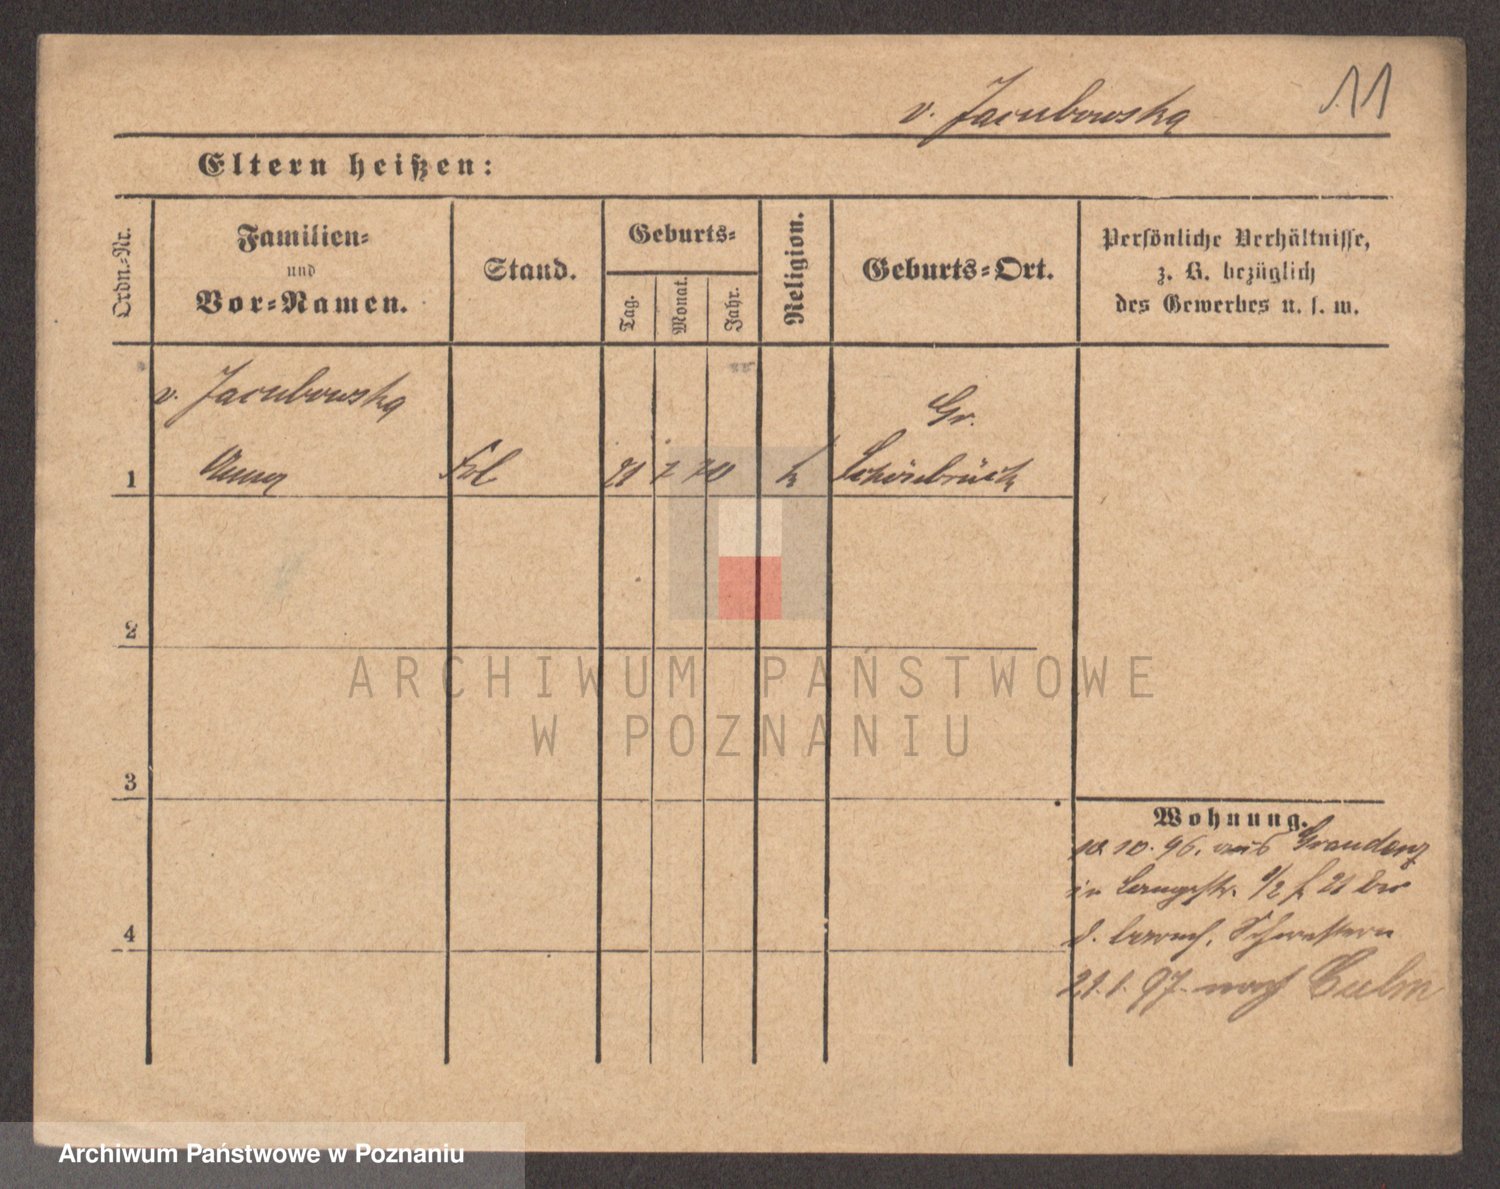 11
v. Jacubowska
Eltern heißen:
Ordn.-Nr.
Familien-
und
Vor-Namen.
Stand.
Geburts-
Tag.
Monat.
Jahr.
Religion.
Geburts-Ort.
Persönliche Verhältnisse,
z. B. bezüglich
des Gewerbes u. s. w.
v. Jacubowska
Gr.
1 Anna Frl 21 7 70 k Schönbrück
2
3
4
Wohnung.
10. 96. aus Graudenz
in Langestr. 1/2 f 21 bei
d. barmh. Schwestern
21.1.97. nach Culm
ARCHIWUM PAŃSTWOWE
W POZNANIU
Archiwum Państwowe w Poznaniu